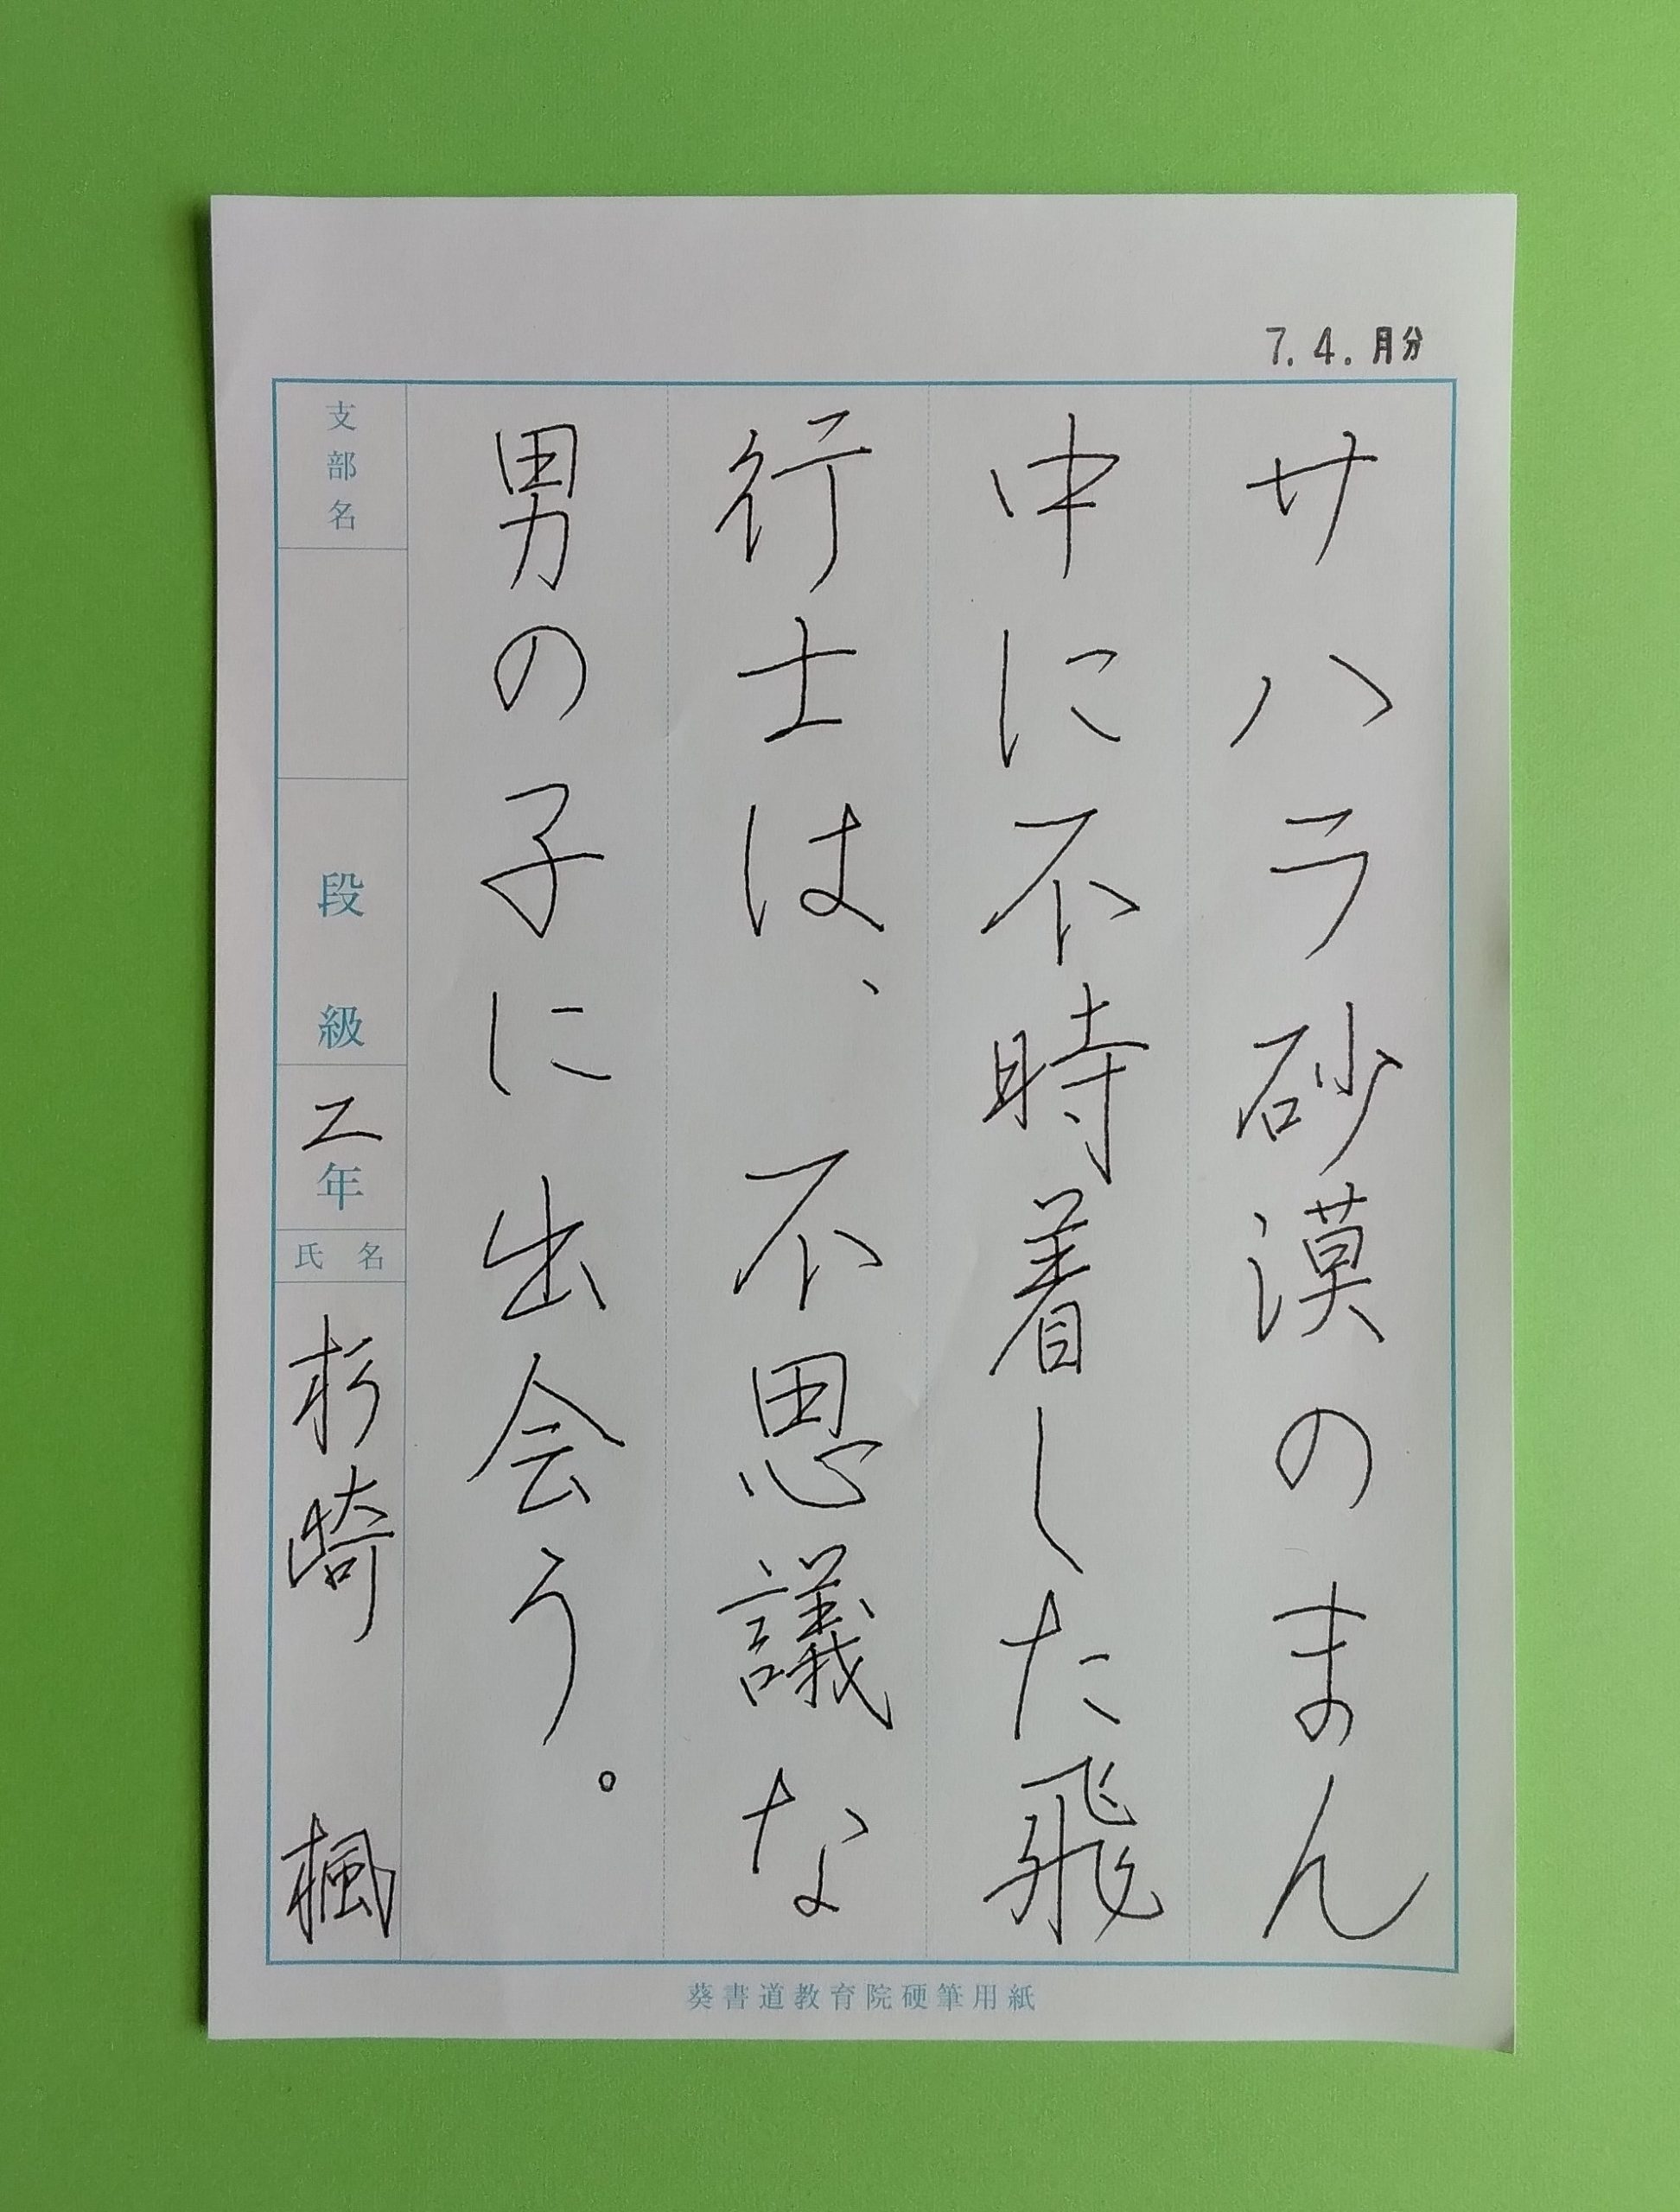 7.4.月分
サハラ砂漠のまん
中に不時着した飛
行士は、不思議な
男の子に出会う。
支部名
段級
二年
氏名
杉崎 楓
葵書道教育院硬筆用紙